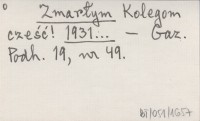 Zmarłym Kolegom
cześć! 1931... — Gaz.
Podh. 19, nr 49.
bj/051/1657